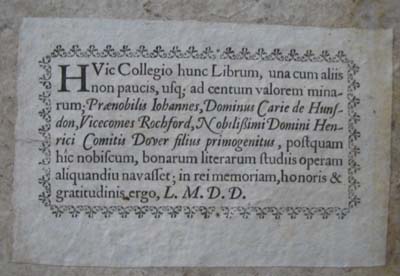 HVic Collegio hunc Librum, una cum aliis
non paucis, usq; ad centum valorem mina-
rum, Prænobilis Iohannes, Dominus Carie de Hunſ-
don, Vicecomes Rochford, Nobiliſſimi Domini Hen-
rici Comitis Dover filius primogenitus, poſtquam
hic nobiſcum, bonarum literarum ſtudiis operam
aliquandiu navaſſet; in rei memoriam, honoris &
gratitudinis ergo, L. M. D. D.